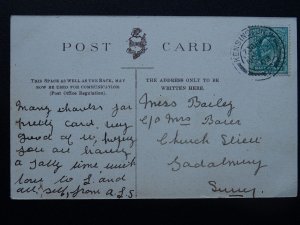 POST CARD
THIS SPACE AS WELL AS THE BACK, MAY
NOW BE USED FOR COMMUNICATION
(Post Office Regulation).
Many thanks for
pretty card, very
good of u, hoping
you are having
a jolly time with
love to L. and
all, self, from A.L.S.
THE ADDRESS ONLY TO BE
WRITTEN HERE.
Miss Bailey
c/o Mrs
Church Street
Godalming
Surrey
KENSINGTON